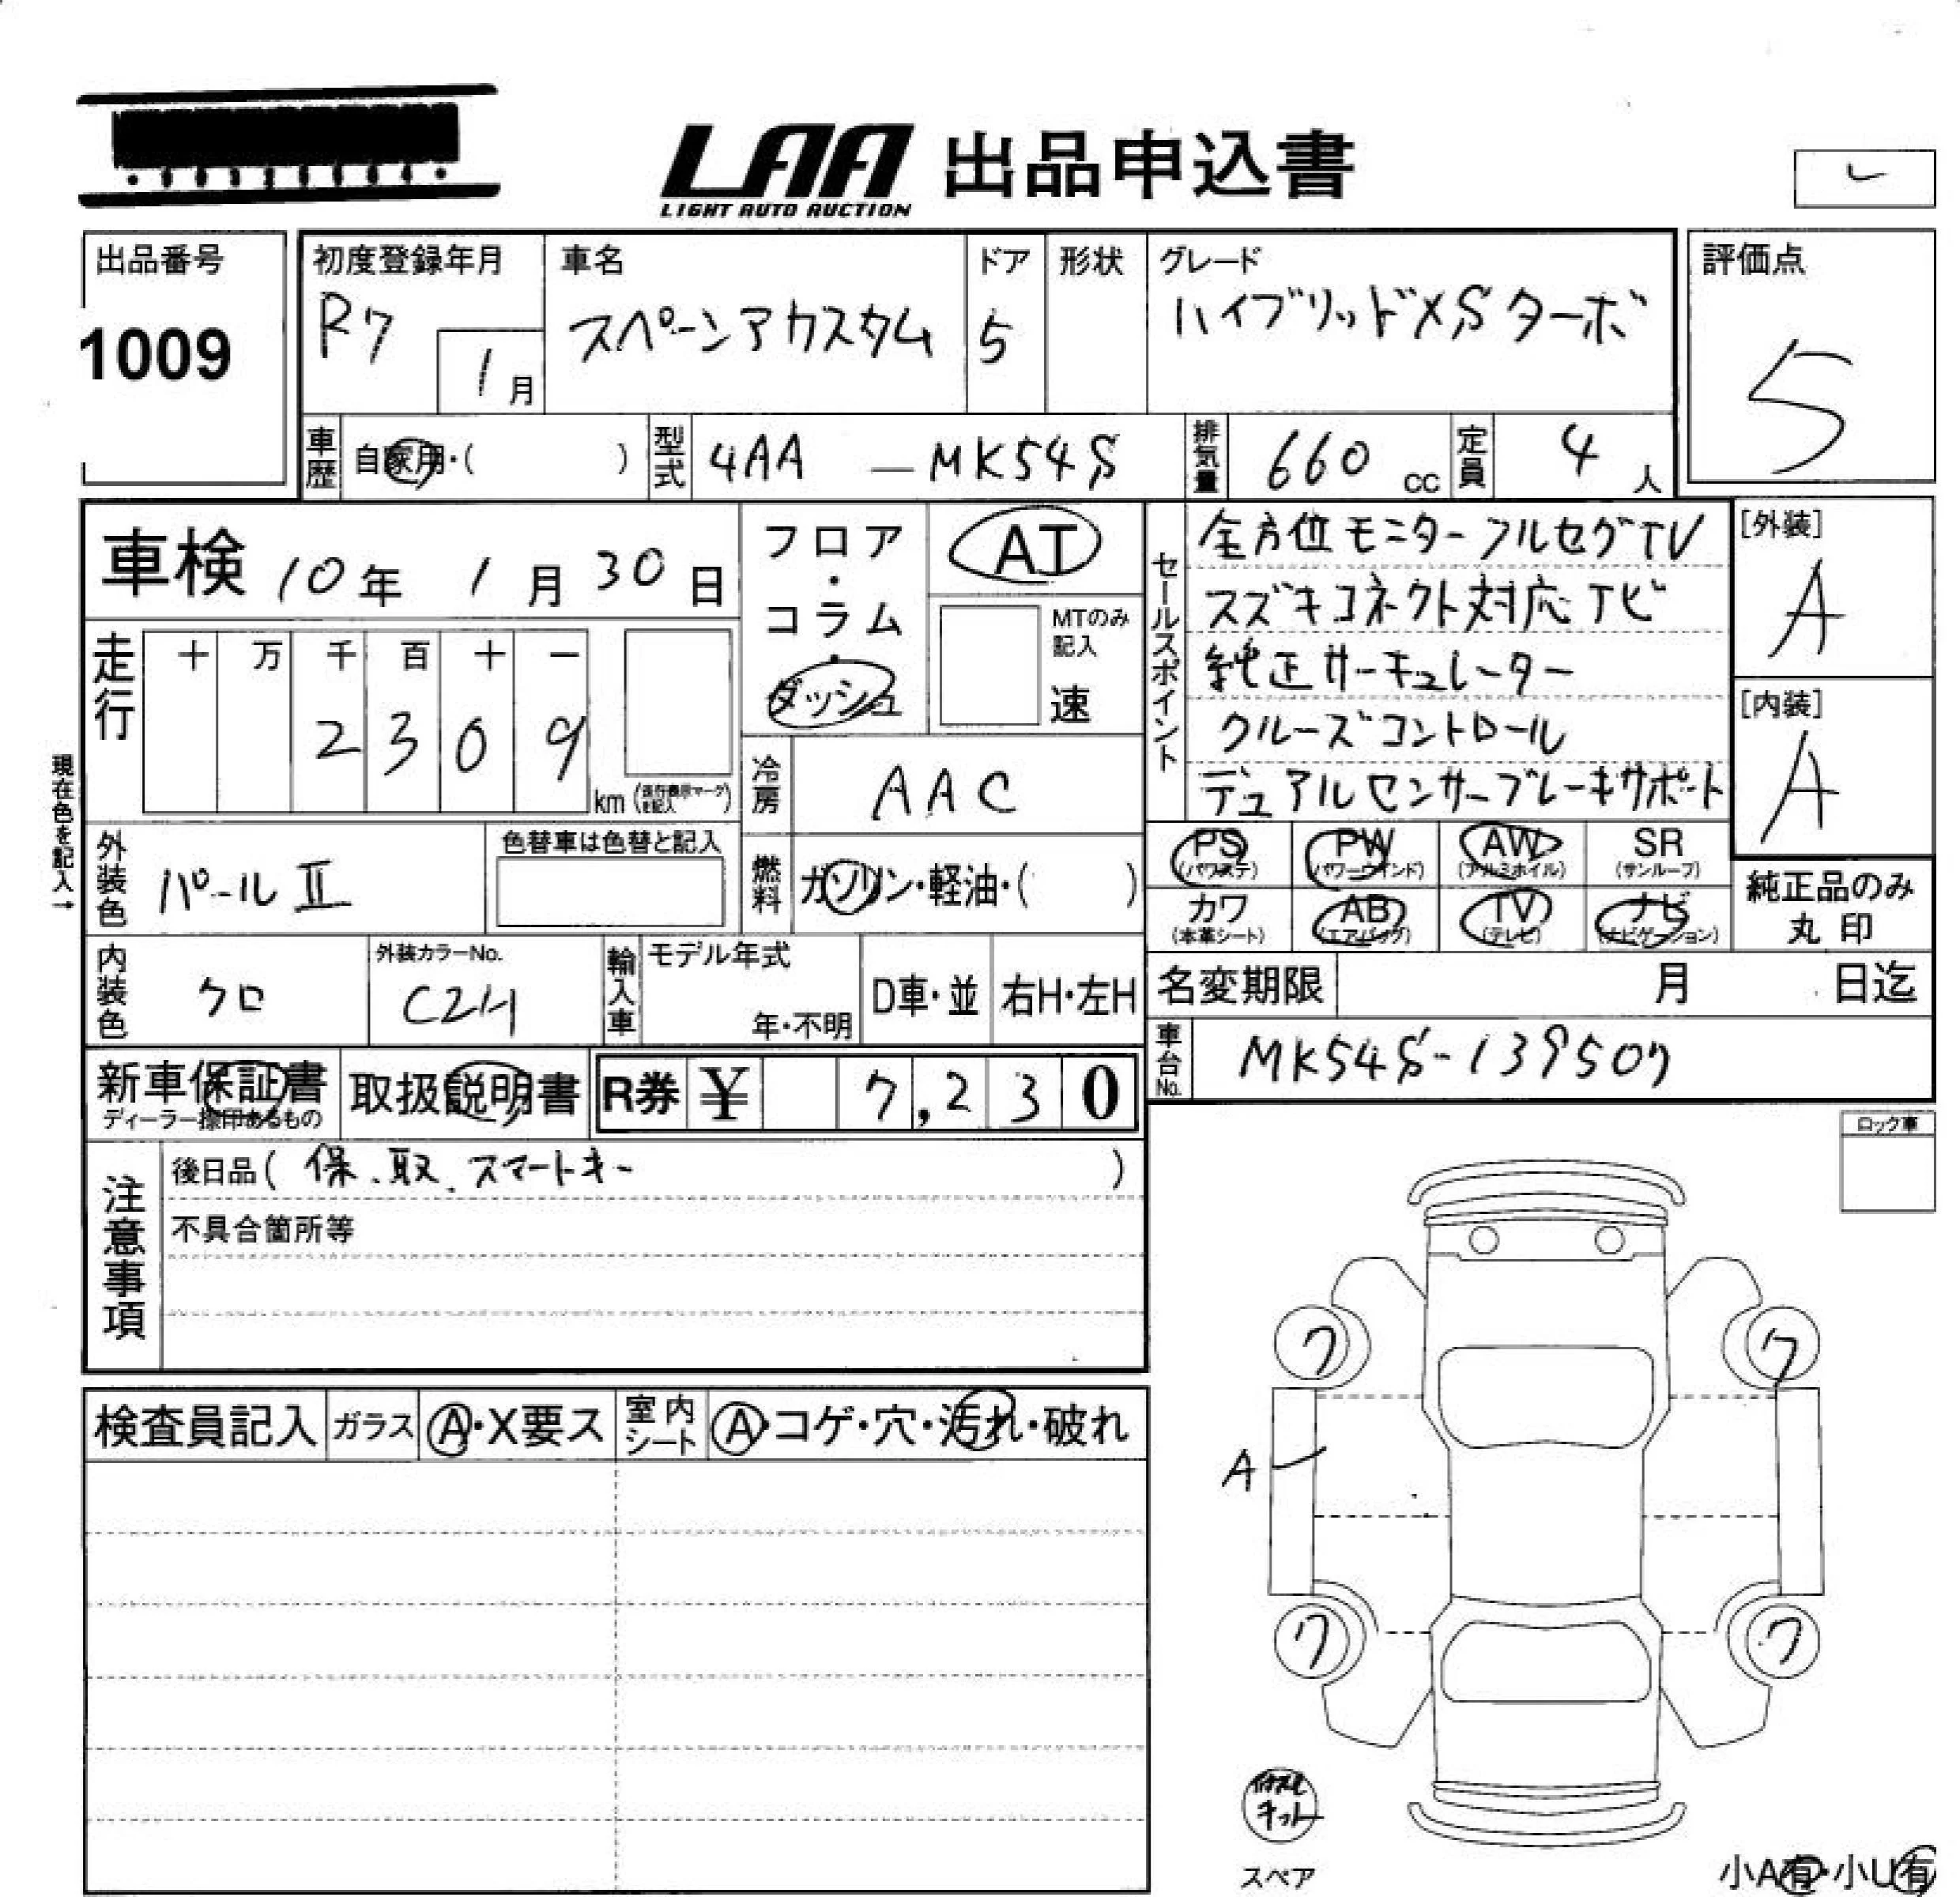 LAA 出品申込書
LIGHT AUTO AUCTION
出品番号
1009
初度登録年月
R7 1月
車名
スペーシアカスタム
ドア
5
形状
グレード
ハイブリッドXSターボ
評価点
5
車歴 自家用・( )
型式 4AA - MK54S
排気量 660 cc
定員 4 人
車検 10年 1月 30日
走行
十 万 千 百 十 一
2 3 0 9
km
現在色を記入→
フロア・コラム・ダッシュ
AT
MTのみ記入
速
冷房 AAC
燃料 ガソリン・軽油・( )
セールスポイント
全方位モニター フルセグTV
スズキコネクト対応ナビ
純正サーキュレーター
クルーズコントロール
デュアルセンサーブレーキサポート
[外装]
A
[内装]
A
外装色 パールⅡ
色替車は色替と記入
PS (パワステ)
PW (パワーウインド)
AW (アルミホイル)
SR (サンルーフ)
カワ (本革シート)
AB (エアバッグ)
TV (テレビ)
ナビ (ナビゲーション)
純正品のみ
丸印
内装色 クロ
外装カラーNo.
輸入車
モデル年式
年・不明
D車・並
右H・左H
名変期限 月 日迄
車台No. MK54S-139507
新車保証書
ディーラー捺印あるもの
取扱説明書
R券 ¥ 7,230
注意事項
後日品( 保、取、スマートキー )
不具合箇所等
ロック車
検査員記入
ガラス A・X要ス
室内シート A・コゲ・穴・汚れ・破れ
ク ク
A
ク ク
キット
スペア
小A有・小U有